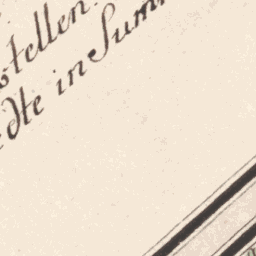 stellen.
dte in Sum